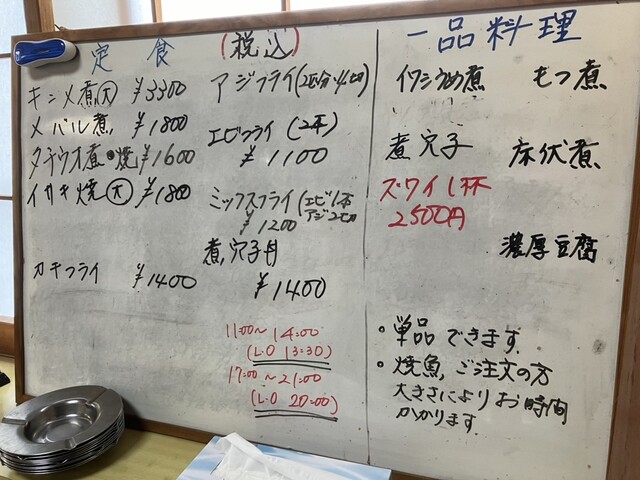 定食
(税込)
キンメ煮(大) ¥3300
メバル煮 ¥1800
タチウオ煮・焼 ¥1600
イサキ焼(大) ¥1800
カキフライ ¥1400
アジフライ(2匹分・4切)
エビフライ(2本)
¥1100
ミックスフライ(エビ1本
アジ2切
¥1200
煮穴子丼
¥1400
11:00~14:00
(L.O 13:30)
17:00~21:00
(L.O 20:00)
一品料理
イワシうめ煮 もつ煮
煮穴子 床伏煮
ズワイ1杯
2500円
濃厚豆腐
・単品できます。
・焼魚、ご注文の方
大きさによりお時間
かかります。